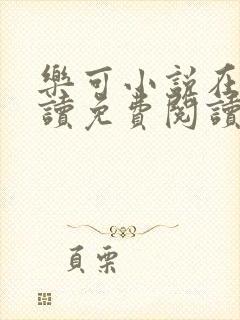 樂可小說在
讀免費閱讀
頁栗